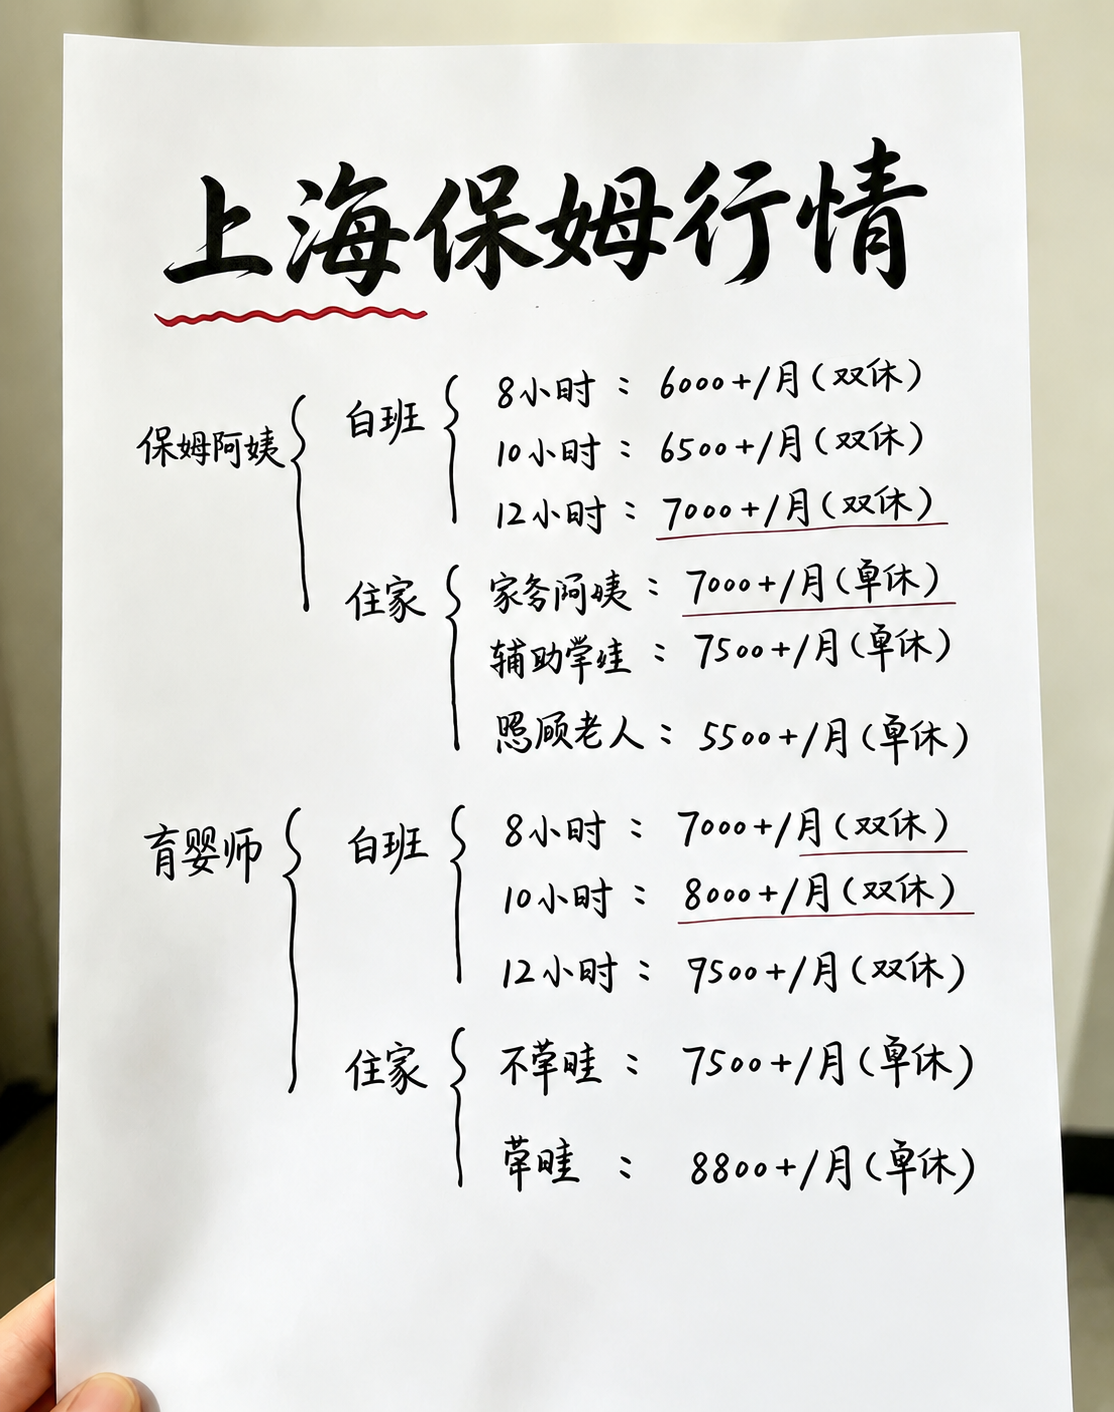 上海保姆行情
保姆阿姨
白班
8小时：6000+/月（双休）
10小时：6500+/月（双休）
12小时：7000+/月（双休）
住家
家务阿姨：7000+/月（单休）
辅助学娃：7500+/月（单休）
照顾老人：5500+/月（单休）
育婴师
白班
8小时：7000+/月（双休）
10小时：8000+/月（双休）
12小时：9500+/月（双休）
住家
不：7500+/月（单休）
：8800+/月（单休）